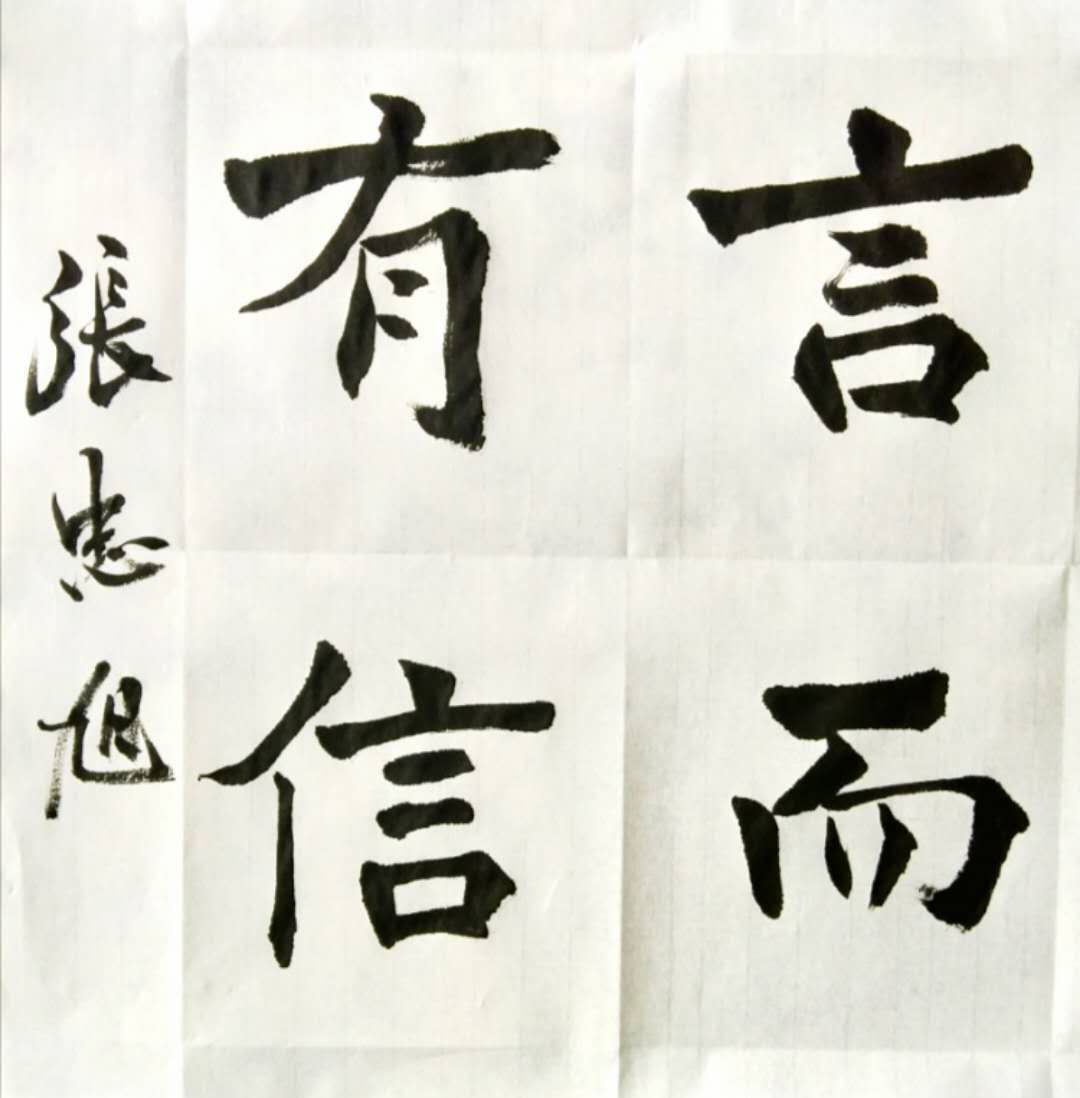 言而
有信
張忠旭